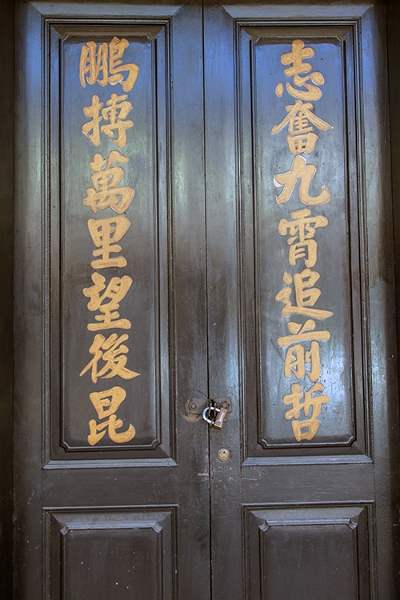 志奮九霄追前哲
鵬搏萬里望後昆